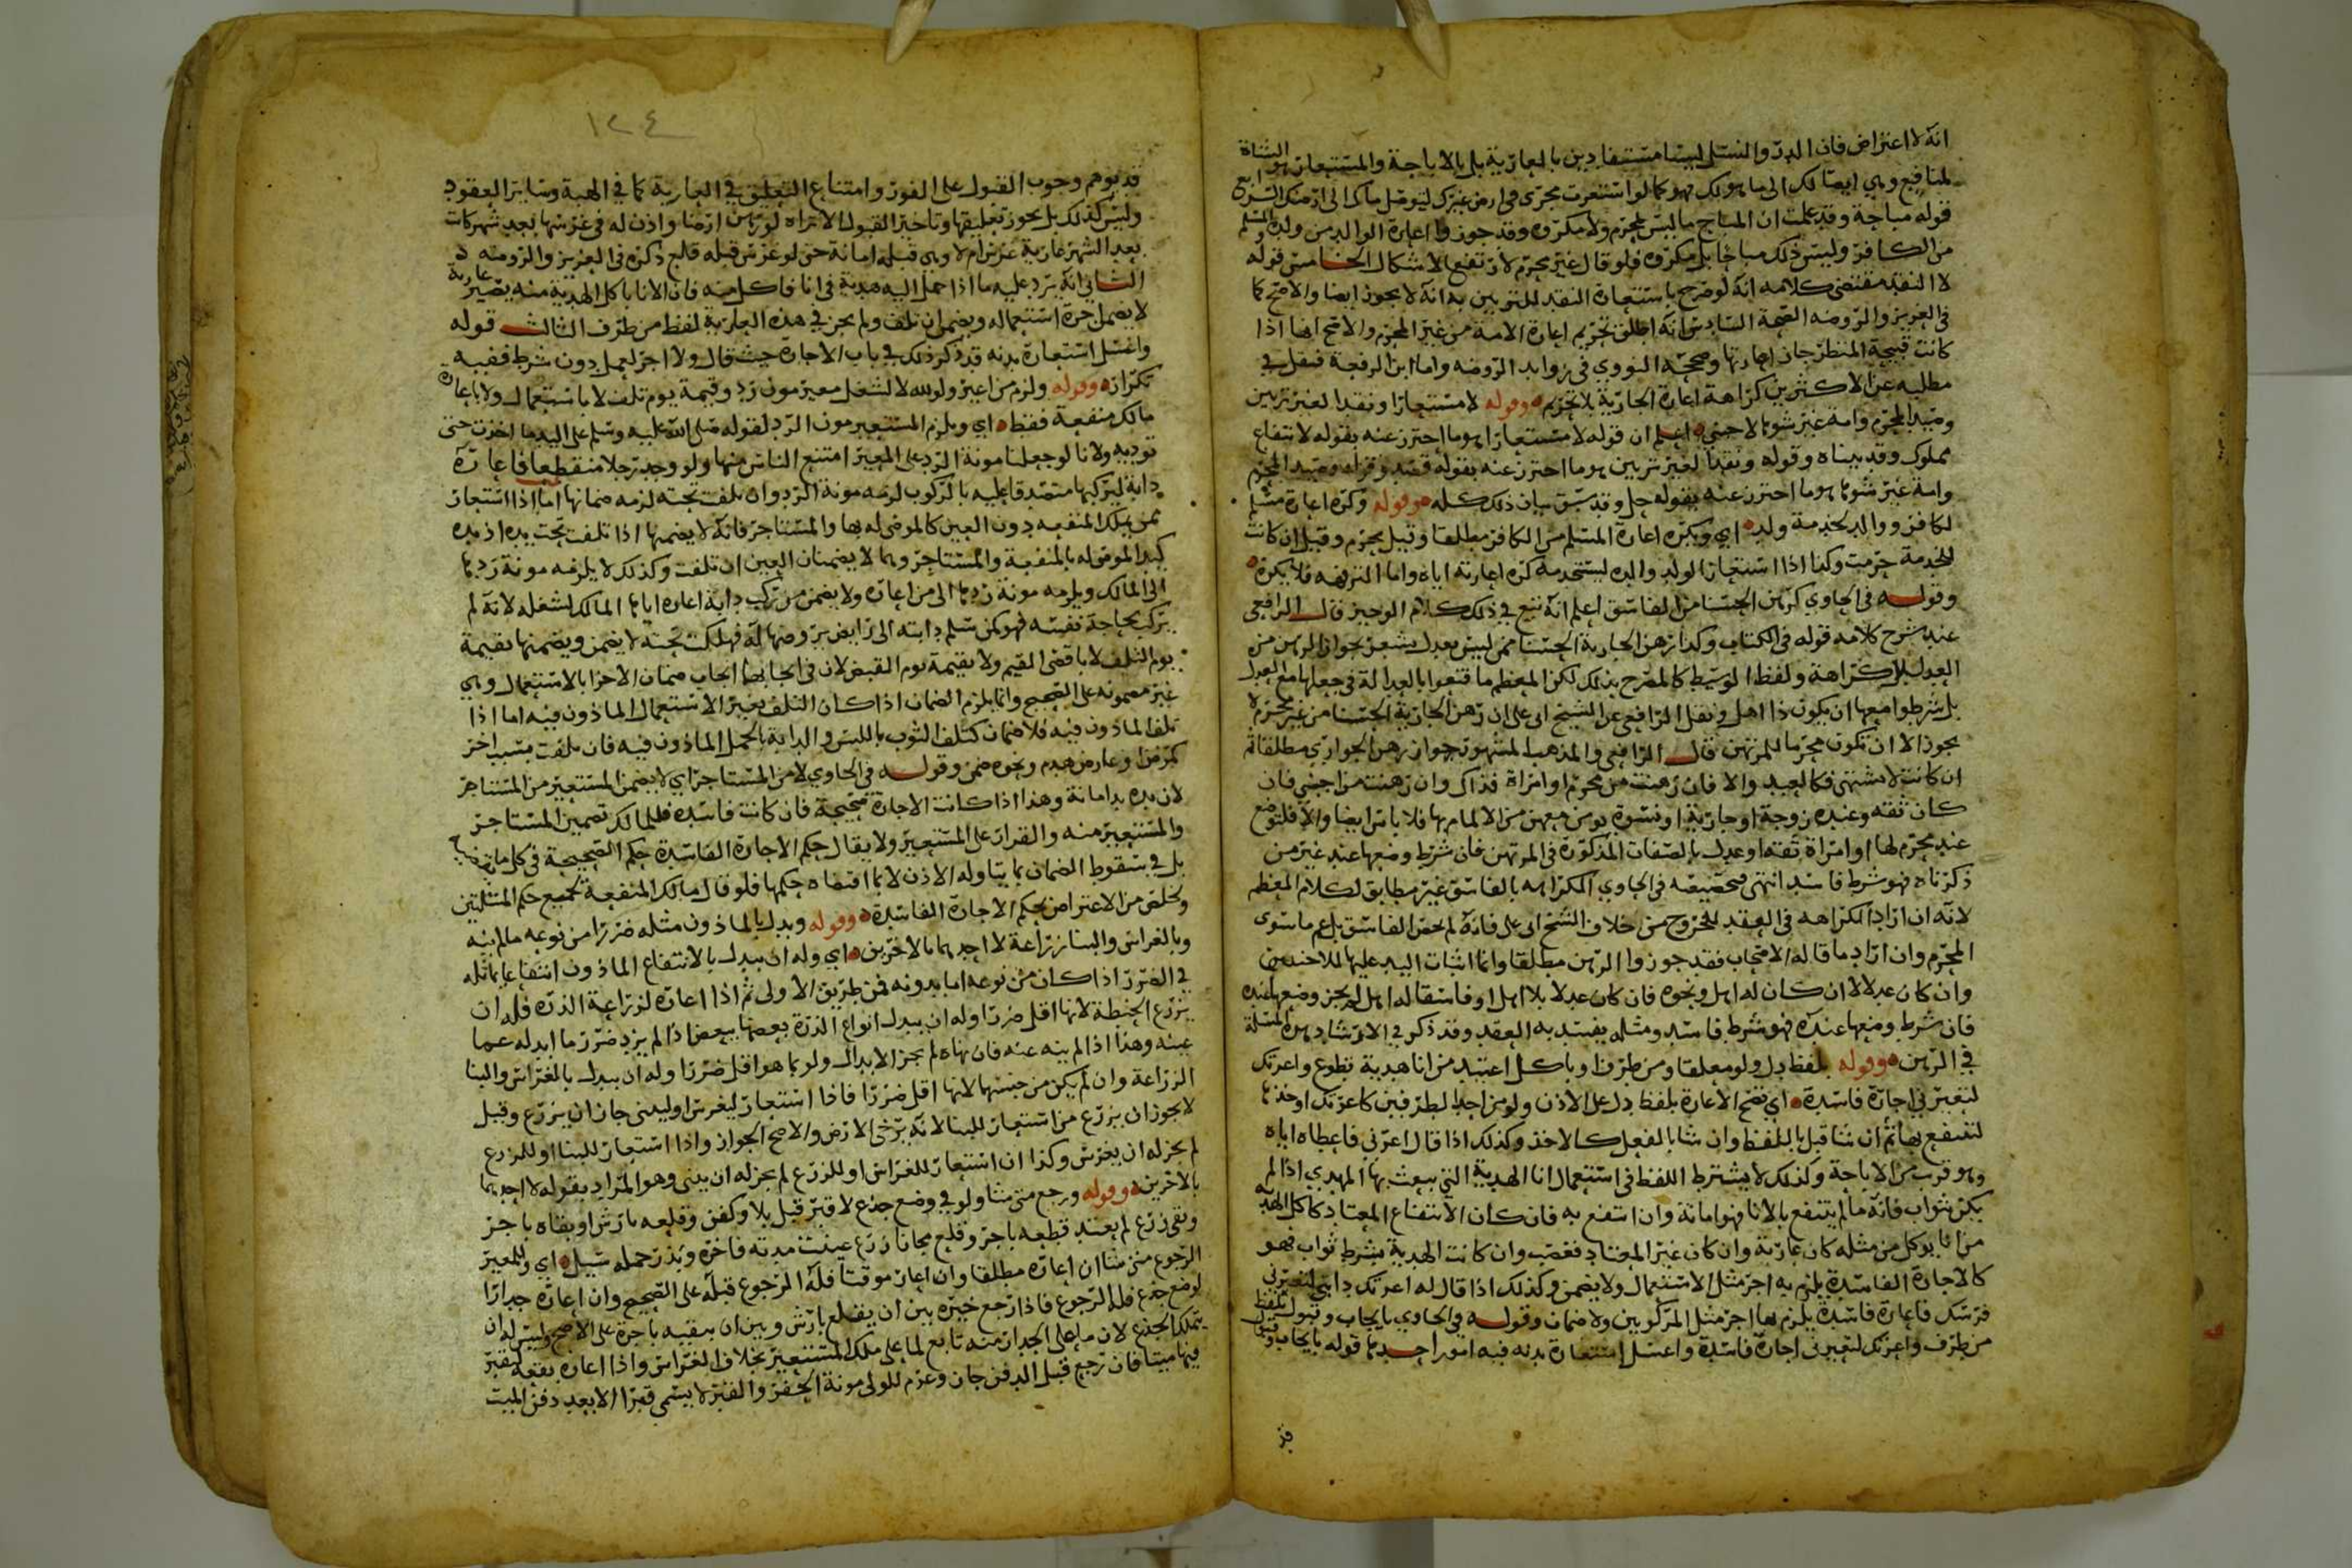 انه لا اعتراض فان الدر والنسل ليسا مستفادين بالعارية بل بالاباحة والمستعار هو الشاة
لمنافع وهي ايصالك الى ما هو لك فهو كما لو استعرت مجرى في ارض غيرك ليتوصل ماك الى ارضك الرابع
قوله مباحة وقد علمت ان المباح ما ليس بمحرم ولا مكروه وقد جوزوا اعارة الوالد من ولده والمسلم
من الكافر وليس ذلك مباحا بل مكروه فلو قال غير محرم لارتفع الاشكال الخامس قوله
لا النقد مقتضى كلامه انه لو صرح باستعارة النقد للتزيين به انه لا يجوز ايضا والاصح كما
في العزيز والروضه الصحة السادس انه اطلق تحريم اعارة الامة من غير المحرم والاصح انها اذا
كانت قبيحة المنظر جاز اعارتها وصححه النووي في زوايد الروضه واما ابن الرفعة فنقل في
مطلبه عن الاكثرين كراهة اعارة الجارية بلا تحريم وقوله لا مستعارا ونقدا لغير تزيين
وصيد المحرم وامة غير شوها لاجنبي اعلم ان قوله لا مستعارا هو ما احترز عنه بقوله لانتفاع
مملوك وقد بيناه وقوله ونقدا لغير تزيين هو ما احترز عنه بقوله قصد وقوله وصيد المحرم
وامة غير شوها هو ما احترز عنه بقوله حل وقد سبق بيان ذلك كله وقوله وكره اعارة مسلم
لكافر ووالد لخدمة ولد اي ويكره اعارة المسلم من الكافر مطلقا وقيل يحرم وقيل ان كانت
للخدمة حرمت وكذا اذا استعار الولد والده ليستخدمه كره اعارته اياه واما الترفه فلا يكره
وقوله في الحاوي كرهن الحسنا من الفاسق اعلم انه تبع في ذلك كلام الوجيز قال الرافعي
عند شرح كلامه قوله في الكتاب وكذا رهن الجارية الحسنا ممن ليس بعدل يشعر بجواز الرهن من
العدل بلا كراهة ولفظ الوسيط كالمصرح بذلك لكن المعظم ما قنعوا بالعدالة في جعلها مع العدل
بل شرطوا معها ان يكون ذا اهل ونقل الرافعي عن الشيخ ابي علي ان رهن الجارية الحسنا من غير محرم لا
يجوز الا ان تكون محرما للمرتهن قال الرافعي والمذهب المشهور جواز رهن الجواري مطلقا ثم
ان كانت لا تشتهى فكالعبد والا فان رهنت من محرم او امراة فذاك وان رهنت من اجنبي فان
كان ثقه وعنده زوجة او جارية او نسوة يومن معهن من الالمام بها فلا باس ايضا والا فلتوضع
عند محرم لها او امراة ثقه او عدل بالصفات المذكورة في المرتهن فان شرط وضعها عند غير من
ذكرناه فهو شرط فاسد انتهى فتخصيصه في الحاوي الكراهه بالفاسق غير مطابق لكلام المعظم
لانه ان اراد الكراهه في العقد للخروج من خلاف الشيخ ابي علي فانه لم يخص الفاسق بل عم ما سوى
المحرم وان اراد ما قاله الاصحاب فقد جوزوا الرهن مطلقا وانما اثبات اليد عليها للاجنبي
وان كان عدلا لا ان كان له اهل ونحوه فان كان عدلا بلا اهل او فاسقا له اهل لم يجز وضعها عنده
فان شرط وضعها عنده فهو شرط فاسد ومثله يفسد به العقد وقد ذكر في الارشاد هذه المسلة
في الرهن وقوله بلفظ دل ولو معلقا ومن طرف وباكل اعتيد من انا هدية تطوع واعرتك
لتعيرني اجارة فاسدة اي تصح الاعارة بلفظ دل على الاذن ولو من احد الطرفين كاعرتك او خذها
لتنتفع بها ثم ان شا قبل باللفظ وان شا بالفعل كالاخذ وكذلك اذا قال اعرني فاعطاه اياه
وهو قرب من الاباحة وكذلك لا يشترط اللفظ في استعمال انا الهدية التي يبعث بها المهدي اذا لم
يكن ثواب فانه ما لم ينتفع بالانا فهو امانة وان انتفع به فان كان الانتفاع المعتاد كاكل الهدية
من انا يوكل من مثله كان عارية وان كان غير المعتاد فغصب وان كانت الهدية بشرط ثواب فهو
كالاجارة الفاسدة يلزم به اجر مثل الاستعمال ولا يضمن وكذلك اذا قال له اعرتك دابتي لتعيرني
فرسك فاعارة فاسدة يلزم بها اجر مثل المركوبين ولا ضمان وقوله في الحاوي بايجاب وقبول بلفظ
من طرف واعرتك لتعيرني اجارة فاسدة واغسل استعارة بدنه فيه امور احدها قوله بايجاب وقبول
قد
١٢٤
قد يوهم وجوب القبول على الفور وامتناع التعليق في العارية كما في الهبة وساير العقود
وليس كذلك بل يجوز تعليقها وتاخير القبول الا تراه لو رهن ارضا واذن له في غرسها بعد شهر كانت
بعد الشهر عارية غرس ام لا وهي قبله امانة حتى لو غرس قبله قلع ذكره في العزيز والروضه
الثاني انه يرد عليه ما اذا حمل اليه هدية في انا فاكل منه فان الانا باكل الهدية منه يصير عارية
لا يضمن اجرة استعماله ويضمن ان تلف ولم يجر في هذه العارية لفظ من طرف الثالث قوله
واغسل استعارة بدنه قد ذكر ذلك في باب الاجارة حيث قال ولا اجر لعمل دون شرط ففيه
تكرار وقوله ولزم من اعير ولو لله لا لشغل معير مون رد وقيمة يوم تلف لا باستعمال ولا باعارة
مالك منفعة فقط اي ويلزم المستعير مون الرد لقوله صلى الله عليه وسلم على اليد ما اخذت حتى
توديه ولانا لو جعلنا مونة الرد على المعير امتنع الناس منها ولو وجد رجلا منقطعا فاعاره
دابة ليركبها متصدقا عليه بالركوب لزمه مونة الرد وان تلفت تحته لزمه ضمانها اما اذا استعار
ممن يملك المنفعه دون العين كالموصى له بها والمستاجر فانه لا يضمنها اذا تلفت تحت يده اذ يده
كيد الموصى له بالمنفعة والمستاجر وهما لا يضمنان العين ان تلفت وكذلك لا يلزمه مونة ردها
الى المالك ويلزمه مونة ردها الى من اعاره ولا يضمن من ركب دابة اعاره اياها المالك لشغله لانه لم
يركب لحاجة نفسه فهو كمن سلم دابته الى رايض يروضها له فهلكت تحته لا يضمن ويضمنها بقيمة
يوم التلف لا باقصى القيم ولا بقيمة يوم القبض لان في ايجابها ايجاب ضمان الاجزا بالاستعمال وهي
غير مضمونه على الصحيح وانما يلزم الضمان اذا كان التلف بغير الاستعمال الماذون فيه اما اذا
تلف الماذون فيه فلا ضمان كتلف الثوب باللبس والدابة بالحمل الماذون فيه فان تلفت بسبب اخر
كمرض او عارض هدم ونحوه ضمن وقوله في الحاوي لا من المستاجر اي لا يضمن المستعير من المستاجر
لان يده يد امانة وهذا اذا كانت الاجارة صحيحة فان كانت فاسده فللمالك تضمين المستاجر
والمستعير منه والقرار على المستعير ولا يقال حكم الاجارة الفاسدة حكم الصحيحة في كل ما تقتضيه
بل في سقوط الضمان بما يتناوله الاذن لا بما اقتضاه حكمها فلو قال مالك المنفعة لجمع حكم المسلتين
وتخلص من الاعتراض بحكم الاجارة الفاسدة وقوله وبدل بالماذون مثله ضررا من نوعه ما لم ينه
وبالغراس والبنا زراعة لا احدهما بالاخرين اي وله ان يبدل بالانتفاع الماذون انتفاعا يماثله
في الضرر اذا كان من نوعه اما بدونه فمن طريق الاولى ثم اذا اعاره لزراعة الذرة فله ان
يزرع الحنطة لانها اقل ضررا وله ان يبدل انواع الذرة بعضها ببعض اذا لم يزد ضرر ما ابدله عما
عينه وهذا اذا لم ينه عنه فان نهاه لم يجز الابدال ولو بما هو اقل ضررا وله ان يبدل بالغراس والبنا
الزراعة وان لم يكن من جنسهما لانها اقل ضررا فاذا استعار ليغرس او ليبني جاز ان يزرع وقيل
لا يجوز ان يزرع من استعار للبنا لانه يرخي الارض والاصح الجواز واذا استعار للبنا او للزرع
لم يجز له ان يغرس وكذا ان استعار للغراس او للزرع لم يجز له ان يبني وهو المراد بقوله لا احدهما
بالاخرين وقوله ورجع متى شا ولو في وضع جذع لا قبر قبل بلا وكفن وقلعه بارش او بقاه باجر
وبقى زرع لم يعتد قطعه باجر وقلع مجانا زرع عينت مدته فاخره وبذر حمله سيل اي وللمعير
الرجوع متى شا ان اعاره مطلقا وان اعار موقتا فله الرجوع قبله على الصحيح وان اعاره جدارا
لوضع جذع فله الرجوع فاذا رجع خيره بين ان يقلع بارش وبين ان يبقيه باجرة على الاصح وليس له ان
يتملك الجذع لان ما على الجدار منه تابع لما على ملك المستعير بخلاف الغراس واذا اعاره بقعة ليقبر
فيها ميتا فان رجع قبل الدفن جاز وغرم للولي مونة الحفر والقبر لا يسمى قبرا الا بعد دفن الميت